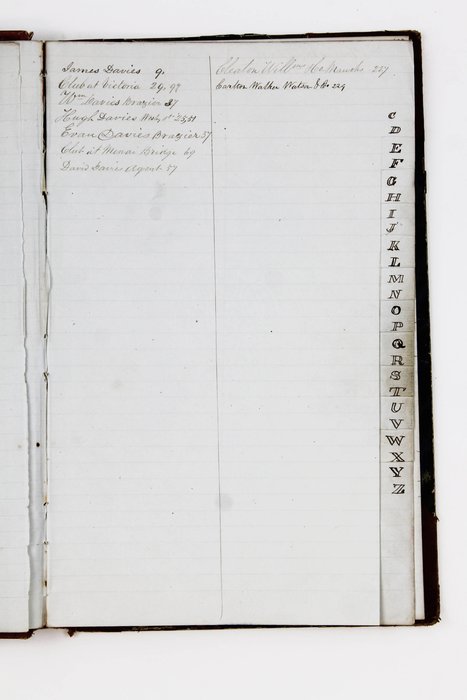 James Davies 9.
Club at Victoria 29. 97
Wm Davies Brazier 37
Hugh Davies 25, 51
Evan Davies Brazier 57
Club at Menai Bridge 69
David Davies Agent 57
Cleaton Willm 257
Carlton Walker Watson & Co 229
C
D
E
F
G
H
I
J
K
L
M
N
O
P
Q
R
S
T
U
V
W
X
Y
Z